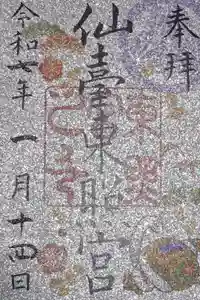 奉拝
仙臺東照宮
令和七年 一月十四日